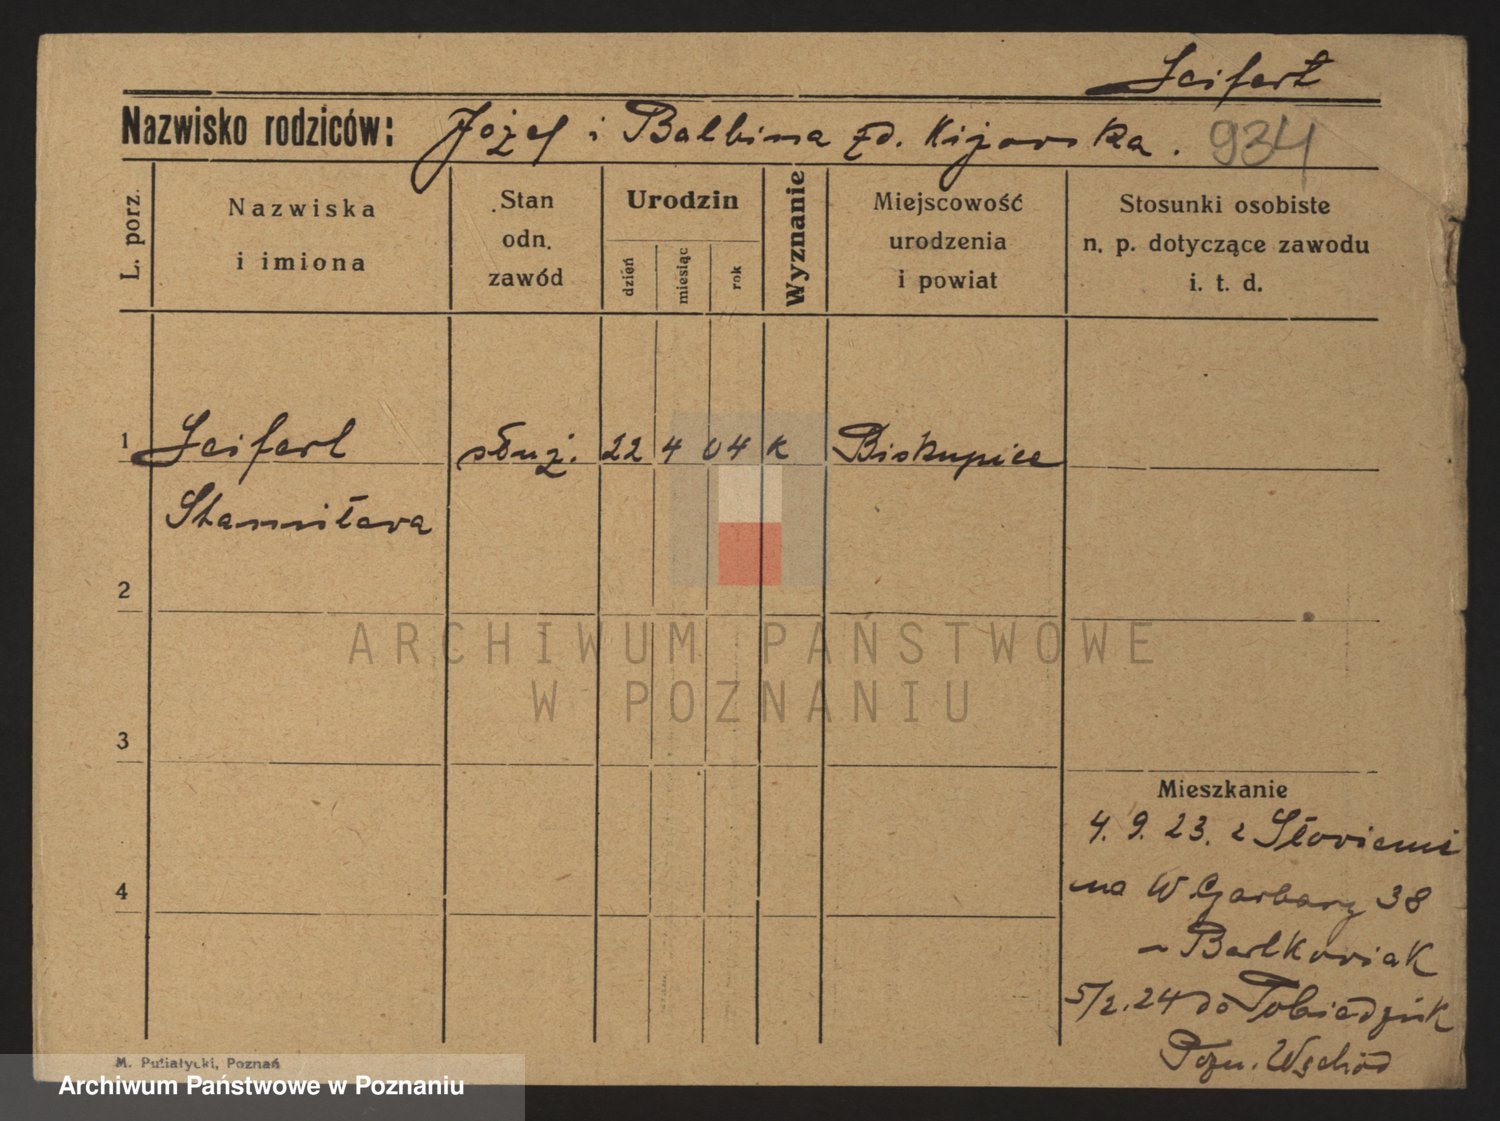 Seifert
Nazwisko rodziców: Józef i Balbina zd. Kijowska. 934
L. porz.
Nazwiska
i imiona
Stan
odn.
zawód
Urodzin
dzień
miesiąc
rok
Wyznanie
Miejscowość
urodzenia
i powiat
Stosunki osobiste
n. p. dotyczące zawodu
i. t. d.
1 Seifert służ. 22 4 04 K Biskupice
Stanisława
2
ARCHIWUM PAŃSTWOWE
W POZNANIU
3
Mieszkanie
4. 9. 23. z
4
na W Garbary 38
Bartkowiak
5/2. 24 do
Pozn. Wschód
M. Putiatycki, Poznań
Archiwum Państwowe w Poznaniu